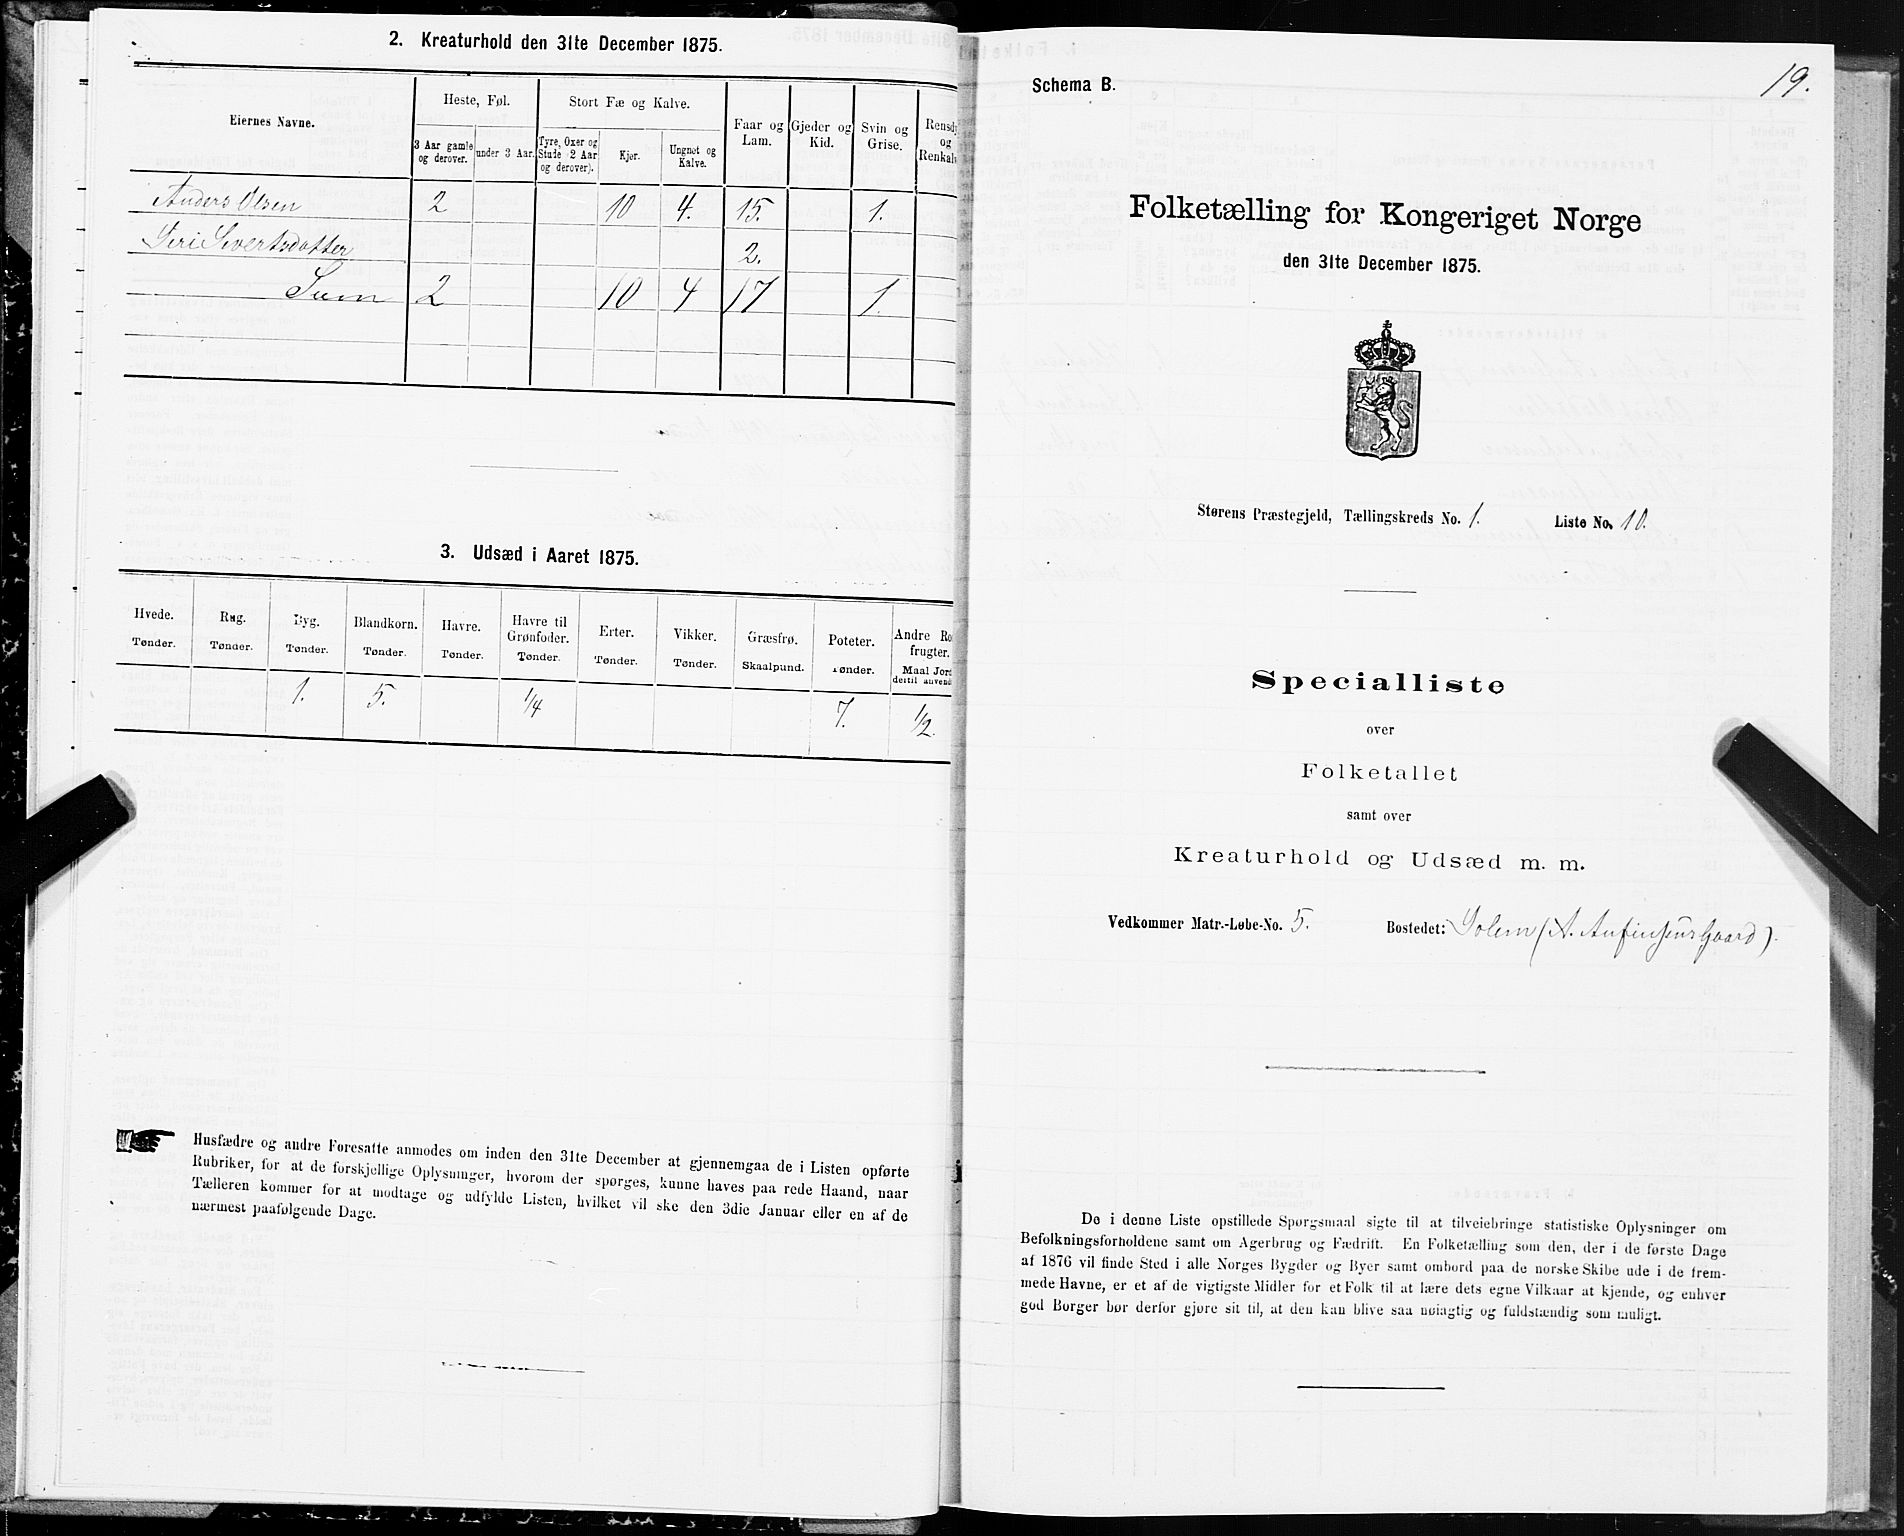 2. Kreaturhold den 31te December 1875.
Eiernes Navne.
Heste, Føl.
Stort Fæ og Kalve.
Faar og Lam.
Gjeder og Kid.
Svin og Grise.
og
3 Aar gamle og derover.
under 3 Aar.
Tyre, Oxer og Stude (2 Aar og derover).
Kjør.
Ungnøt og Kalve.
Anders Olsen 2 10 4. 15. 1.
Siri Sivertsdatter 2.
Sum 2 10 4 17 1.
3. Udsæd i Aaret 1875.
Hvede. Tønder.
Rug. Tønder.
Byg. Tønder.
Blandkorn. Tønder.
Havre. Tønder.
Havre til Grønfoder. Tønder.
Erter. Tønder.
Vikker. Tønder.
Græsfrø. Skaalpund.
Poteter. Tønder.
Andre Ro frugter. Maal Jord dertil anvend
1. 5. 1/4 7. 1/2
Husfædre og andre Foresatte anmodes om inden den 31te December at gjennemgaa de i Listen opførte
Rubriker, for at de forskjellige Oplysninger, hvorom der spørges, kunne haves paa rede Haand, naar
Tælleren kommer for at modtage og udfylde Listen, hvilket vil ske den 3die Januar eller en af de
nærmest paafølgende Dage.
Schema B.
19.
Folketælling for Kongeriget Norge
den 31te December 1875.
Størens Præstegjeld, Tællingskreds No. 1. Liste No. 10.
Specialliste
over
Folketallet
samt over
Kreaturhold og Udsæd m. m.
Vedkommer Matr.-Løbe-No. 5. Bostedet: Solem (A. Anfinsens Gaard).
De i denne Liste opstillede Spørgsmaal sigte til at tilveiebringe statistiske Oplysninger om
Befolkningsforholdene samt om Agerbrug og Fædrift. En Folketælling som den, der i de første Dage
af 1876 vil finde Sted i alle Norges Bygder og Byer samt ombord paa de norske Skibe ude i de frem-
mede Havne, er et af de vigtigste Midler for et Folk til at lære dets egne Vilkaar at kjende, og enhver
god Borger bør derfor gjøre sit til, at den kan blive saa nøiagtig og fuldstændig som muligt.